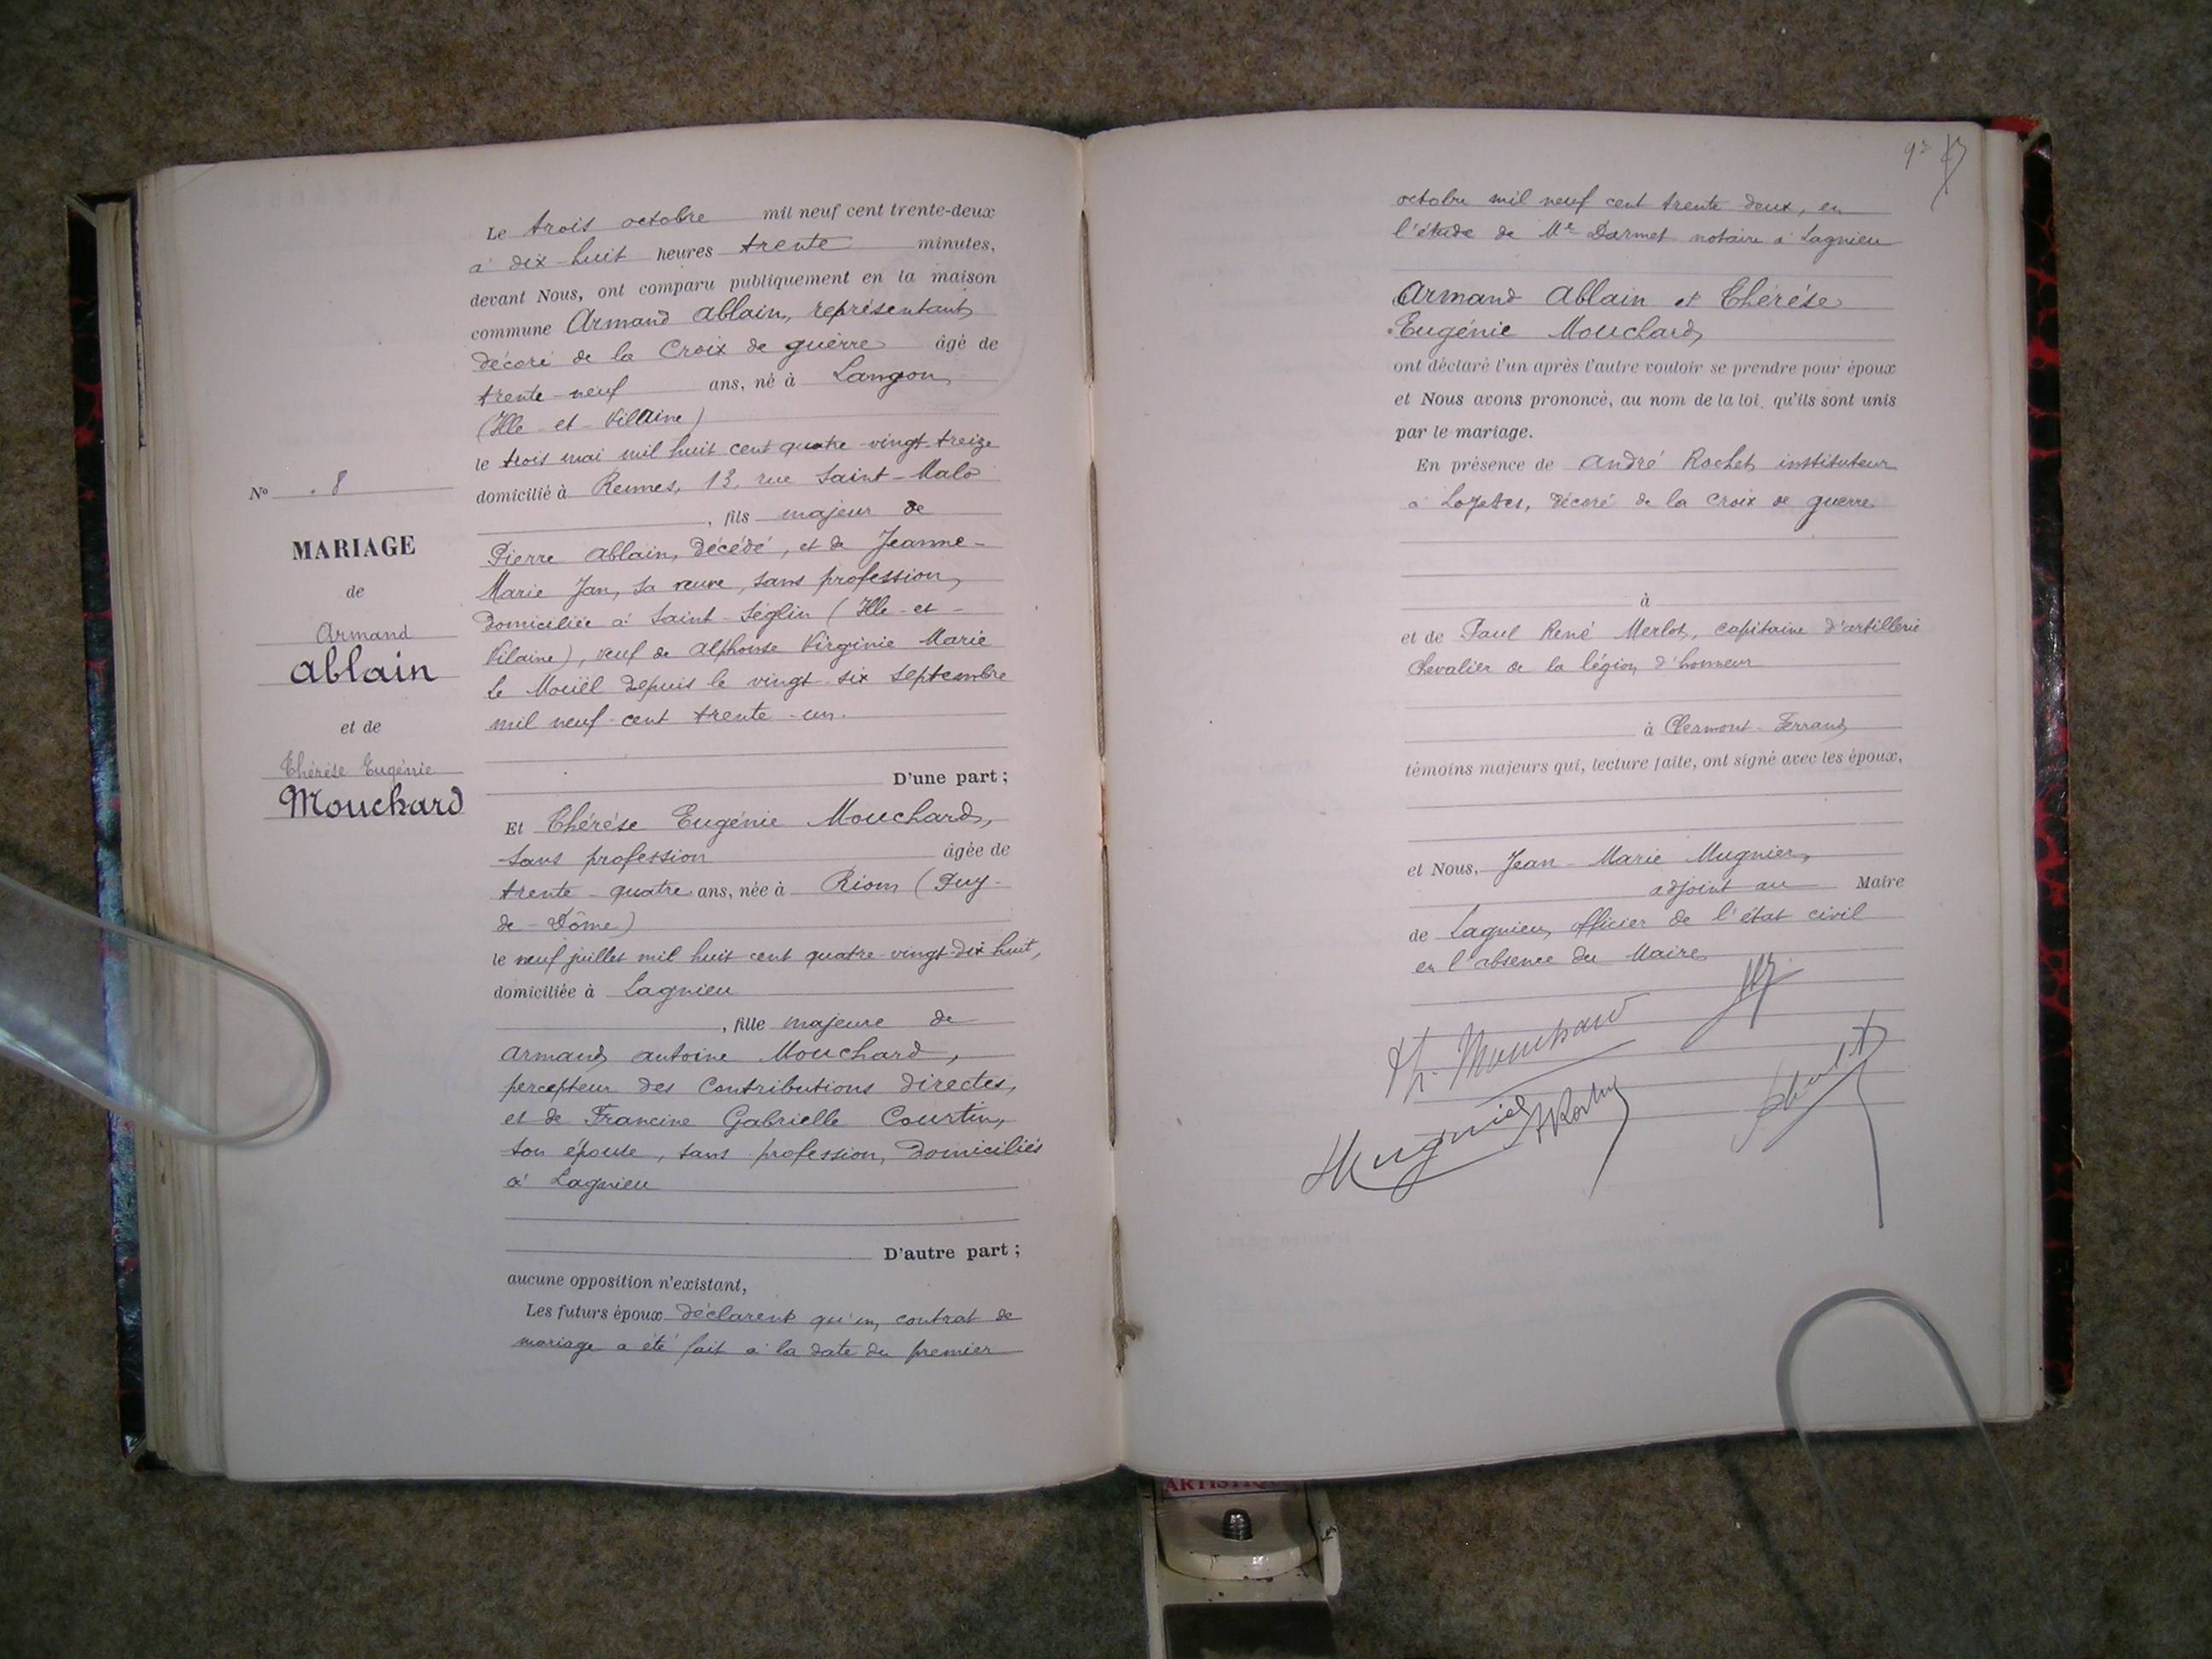 Le trois octobre mil neuf cent trente-deux
à dix-huit heures trente minutes,
devant Nous, ont comparu publiquement en la maison
commune Armand Ablain, représentant
décoré de la Croix de guerre âgé de
trente-neuf ans, né à Langon
(Ille-et-Vilaine)
le trois mai mil huit cent quatre-vingt-treize
domicilié à Rennes, 13, rue Saint-Malo
, fils majeur de
Pierre Ablain, décédé, et de Jeanne-
Marie Jan, sa veuve, sans profession,
domiciliée à Saint-Séglin (Ille-et-
Vilaine), veuf de Alphonse Virginie Marie
Le Mouël depuis le vingt-six septembre
mil neuf-cent trente-un.
D'une part ;
Et Thérèse Eugénie Mouchard,
sans profession âgée de
trente-quatre ans, née à Riom (Puy-
de-Dôme)
le neuf juillet mil huit cent quatre-vingt-dix huit,
domiciliée à Lagnieu
, fille majeure de
Armand Antoine Mouchard,
percepteur des Contributions directes,
et de Francine Gabrielle Courtin,
son épouse, sans profession, domiciliés
à Lagnieu
D'autre part ;
aucune opposition n'existant,
Les futurs époux déclarent qu'un contrat de
mariage a été fait à la date du premier
N° 8
MARIAGE
de
Armand
Ablain
et de
Thérèse Eugénie
Mouchard
octobre mil neuf cent trente deux, en
l'étude de Me Darmet notaire à Lagnieu
Armand Ablain et Thérèse
Eugénie Mouchard
ont déclaré l'un après l'autre vouloir se prendre pour époux
et Nous avons prononcé, au nom de la loi, qu'ils sont unis
par le mariage.
En présence de André Rochet instituteur
à décoré de la Croix de guerre
à
et de Paul René Merlot, capitaine d'artillerie
Chevalier de la légion d'honneur
à Clermont-Ferrand
témoins majeurs qui, lecture faite, ont signé avec les époux,
et Nous, Jean-Marie Mugnier,
adjoint au Maire
de Lagnieu, officier de l'état civil
en l'absence du Maire
Th. Mouchard
Mugnier
ARTISTIQU